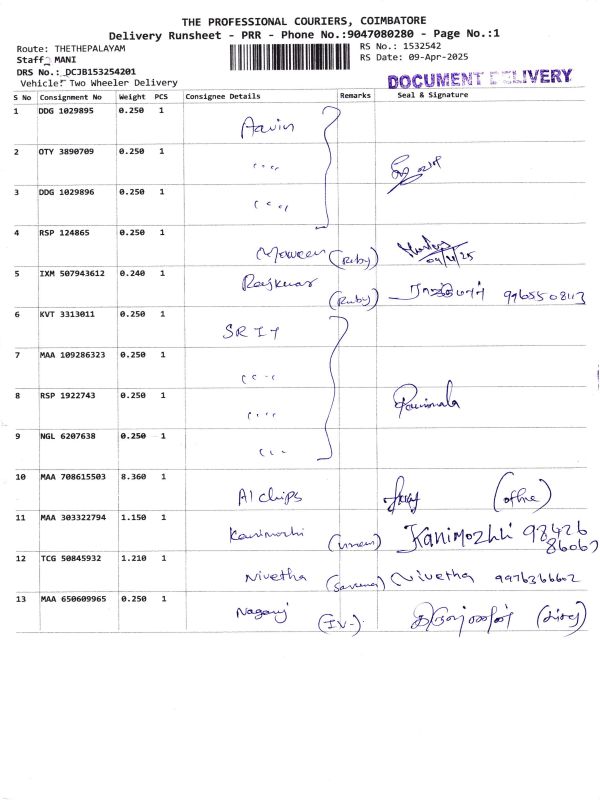 THE PROFESSIONAL COURIERS, COIMBATORE
Delivery Runsheet - PRR - Phone No.:9047080280 - Page No.:1
Route: THETHEPALAYAM RS No.: 1532542
Staff: MANI RS Date: 09-Apr-2025
DRS No.: DCJB153254201
Vehicle: Two Wheeler Delivery DOCUMENT DELIVERY
S No Consignment No Weight PCS Consignee Details Remarks Seal & Signature
1 DDG 1029895 0.250 1 Aavin
2 OTY 3890709 0.250 1 " "
3 DDG 1029896 0.250 1 " "
4 RSP 124865 0.250 1 (Ruby) 09/4/25
5 IXM 507943612 0.240 1 Rajkumar (Ruby) ராஜ்குமார் 9965508113
6 KVT 3313011 0.250 1 SRIT
7 MAA 109286323 0.250 1 " "
8 RSP 1922743 0.250 1 " "
9 NGL 6207638 0.250 1 " "
10 MAA 708615503 8.360 1 A1 chips (office)
11 MAA 303322794 1.150 1 Kanimozhi Kanimozhi 98426 86067
12 TCG 50845932 1.210 1 Nivetha Nivetha 9976366602
13 MAA 650609965 0.250 1 Nagaraj (IV-)